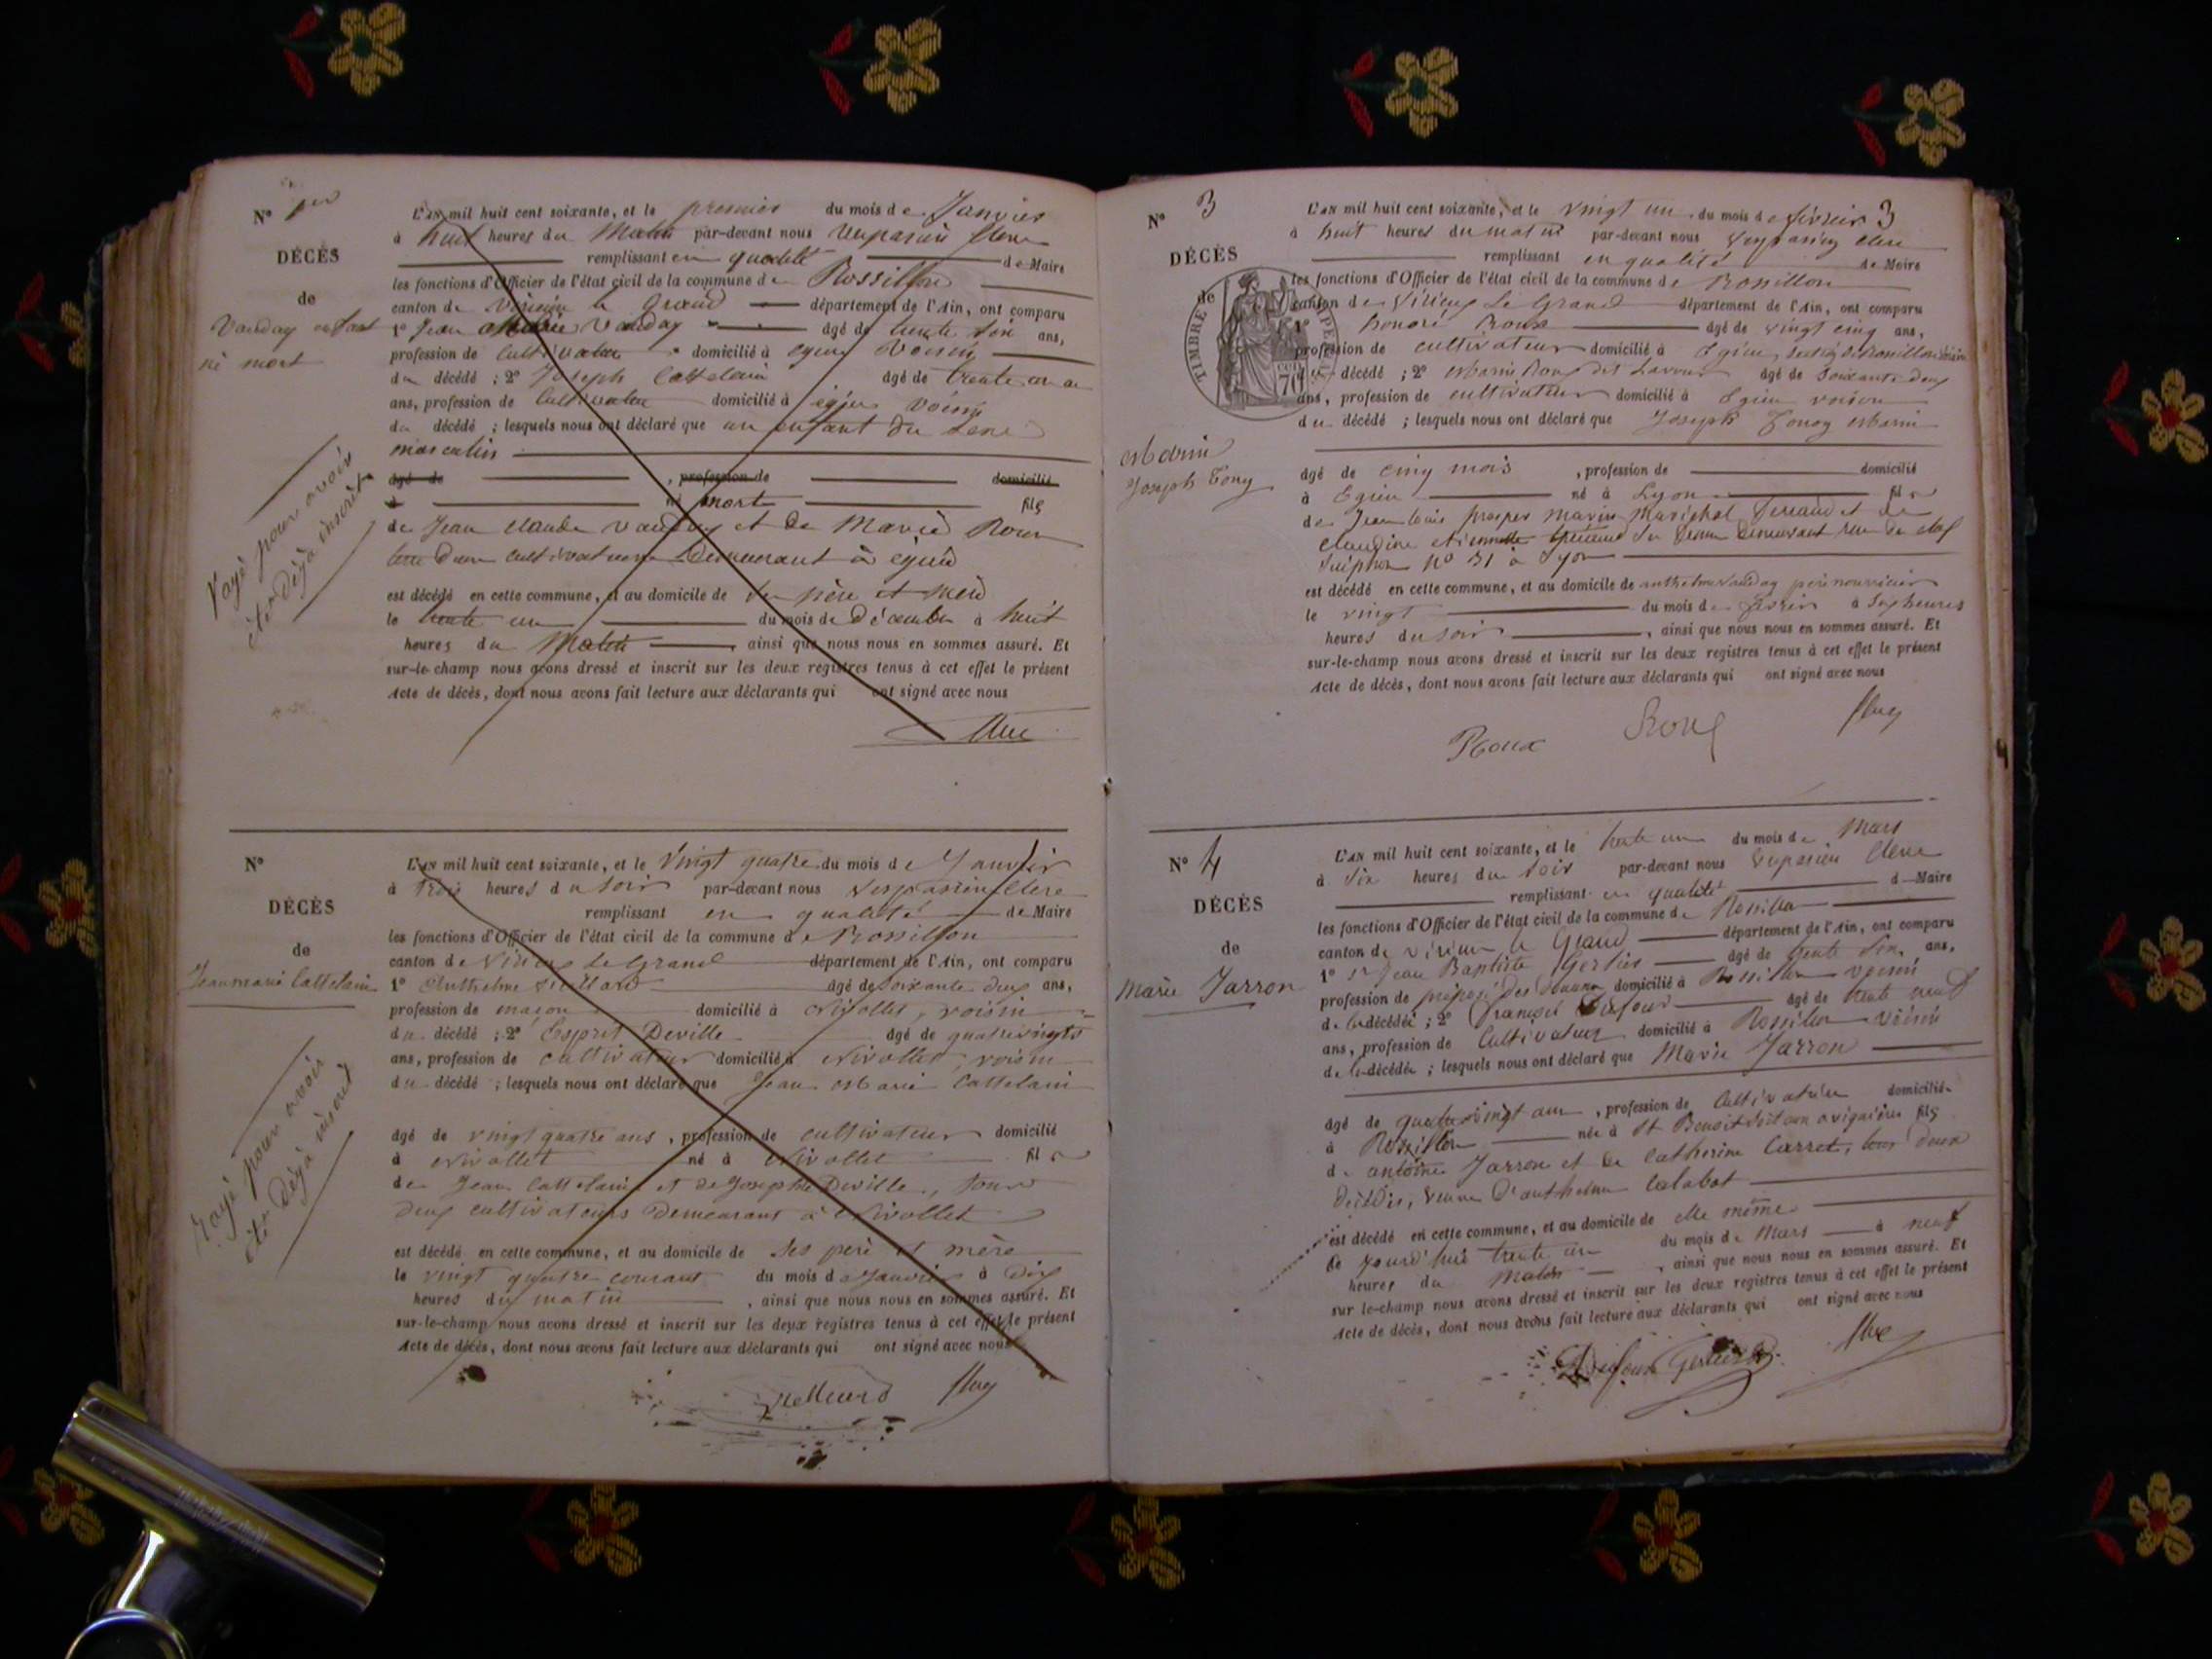 N° 1er
DÉCÈS
de
Vauday enfant
né mort
Rayé pour avoir
été déjà inscrit
L'AN mil huit cent soixante, et le premier du mois de Janvier
à huit heures du Matin par-devant nous Vespasien Clerc
remplissant en qualité de Maire
les fonctions d'Officier de l'état civil de la commune de Rossillon
canton de Virieu le Grand département de l'Ain, ont comparu
1° Jean Marie Vauday âgé de trente six ans,
profession de Cultivateur domicilié à egieu Voisin
du décédé ; 2° Joseph Cattelain âgé de trente un
ans, profession de Cultivateur domicilié à egieu voisin
du décédé ; lesquels nous ont déclaré que un enfant du sexe
masculin
âgé de , profession de domicilié
à né mort fils
de Jean Claude Vauday et de Marie Roux
tous deux cultivateurs demeurant à egieu
est décédé en cette commune, et au domicile de ses père et mère
le trente un du mois de décembre à huit
heures du Matin , ainsi que nous nous en sommes assuré. Et
sur-le-champ nous avons dressé et inscrit sur les deux registres tenus à cet effet le présent
Acte de décès, dont nous avons fait lecture aux déclarants qui ont signé avec nous
Clerc
N°
DÉCÈS
de
Jean marie Cattelain
Rayé pour avoir
été déjà inscrit
L'AN mil huit cent soixante, et le Vingt quatre du mois de Janvier
à trois heures du soir par-devant nous Vespasien Clerc
remplissant en qualité de Maire
les fonctions d'Officier de l'état civil de la commune de Rossillon
canton de Virieu le Grand département de l'Ain, ont comparu
1° Anthelme âgé de soixante deux ans,
profession de maçon domicilié à Nivollet, voisin
du décédé ; 2° Esprit Deville âgé de quatre vingts
ans, profession de cultivateur domicilié à Nivollet, voisin
du décédé ; lesquels nous ont déclaré que Jean Marie Cattelain
âgé de vingt quatre ans , profession de cultivateur domicilié
à Nivollet né à Nivollet fils
de Jean Cattelain et de Josephte Deville, tous
deux cultivateurs demeurant à Nivollet
est décédé en cette commune, et au domicile de ses père et mère
le vingt quatre courant du mois de Janvier à dix
heures du matin , ainsi que nous nous en sommes assuré. Et
sur-le-champ nous avons dressé et inscrit sur les deux registres tenus à cet effet le présent
Acte de décès, dont nous avons fait lecture aux déclarants qui ont signé avec nous
Clerc
3
N° 3
DÉCÈS
de
TIMBRE IMPÉRIAL
Marin
Joseph Tony
L'AN mil huit cent soixante, et le vingt un du mois de février
à huit heures du matin par-devant nous Vespasien Clerc
remplissant en qualité de Maire
les fonctions d'Officier de l'état civil de la commune de Rossillon
canton de Virieu le Grand département de l'Ain, ont comparu
1° honoré Roux âgé de vingt cinq ans,
profession de cultivateur domicilié à Egieu, section de Rossillon voisin
du décédé ; 2° Marin Roux dit âgé de soixante deux
ans, profession de cultivateur domicilié à Egieu voisin
du décédé ; lesquels nous ont déclaré que Joseph Tony Marin
âgé de cinq mois , profession de domicilié
à Egieu né à Lyon fils
de Jean louis prosper Marin Maréchal et de
Claudine Etiennette demeurant rue de
N° 31 à Lyon
est décédé en cette commune, et au domicile de anthelme Vauday père nourricier
le vingt du mois de février à six heures
heures du soir , ainsi que nous nous en sommes assuré. Et
sur-le-champ nous avons dressé et inscrit sur les deux registres tenus à cet effet le présent
Acte de décès, dont nous avons fait lecture aux déclarants qui ont signé avec nous
Roux Roux Clerc
N° 4
DÉCÈS
de
Marie Jarron
L'AN mil huit cent soixante, et le trente un du mois de Mars
à Six heures du soir par-devant nous Vespasien Clerc
remplissant en qualité de Maire
les fonctions d'Officier de l'état civil de la commune de Rossillon
canton de Virieu le Grand département de l'Ain, ont comparu
1° Sr Jean Baptiste âgé de trente six ans,
profession de préposé des douanes domicilié à Rossillon voisin
de la décédée ; 2° François Dufour âgé de trente neuf
ans, profession de Cultivateur domicilié à Rossillon voisin
de la décédée ; lesquels nous ont déclaré que Marie Jarron
âgé de quatre vingt un , profession de Cultivatrice domiciliée
à Rossillon née à St Benoit fils
de antoine Jarron et de Catherine Carret, tous deux
décédés, veuve d'anthelme Calabot
est décédé en cette commune, et au domicile de elle même
le jourd'hui trente un du mois de Mars à neuf
heures du matin , ainsi que nous nous en sommes assuré. Et
sur-le-champ nous avons dressé et inscrit sur les deux registres tenus à cet effet le présent
Acte de décès, dont nous avons fait lecture aux déclarants qui ont signé avec nous
Dufour Clerc